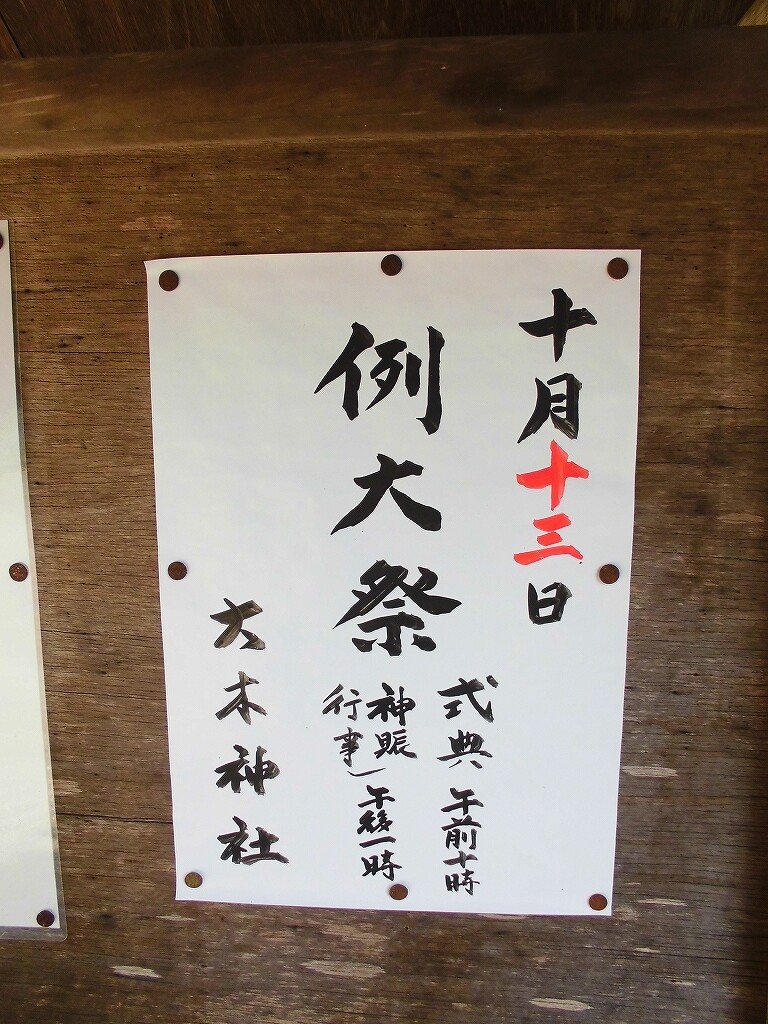 十月十三日
例大祭
式典 午前十時
神賑行事) 午後一時
大木神社